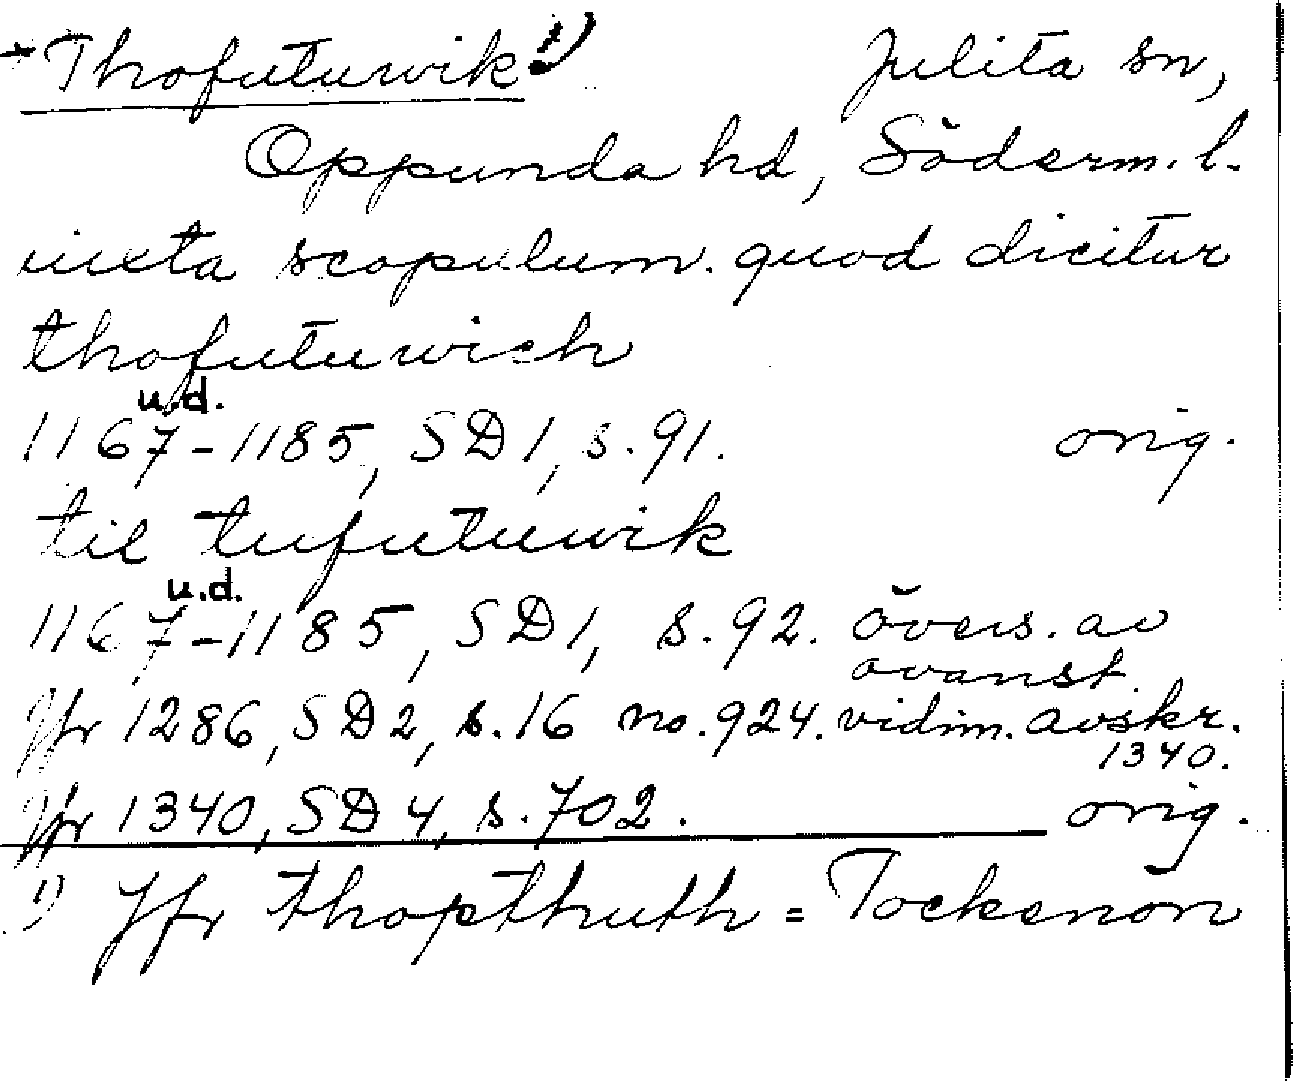 *Thofutuwik 1) Julita sn,
Oppunda hd, Söderm. l.
iuxta scopulum. quod dicitur
thofutuwich
u.d.
1167-1185, SD1, s.91. orig.
til tufutuwik
u.d.
1167-1185, SD1, s.92. övers. av
ovanst.
Jfr 1286, SD2, s.16 no.924. vidim. avskr.
1340.
Jfr 1340, SD4, s.702. orig.
1) Jfr thopthuth = Tockenön